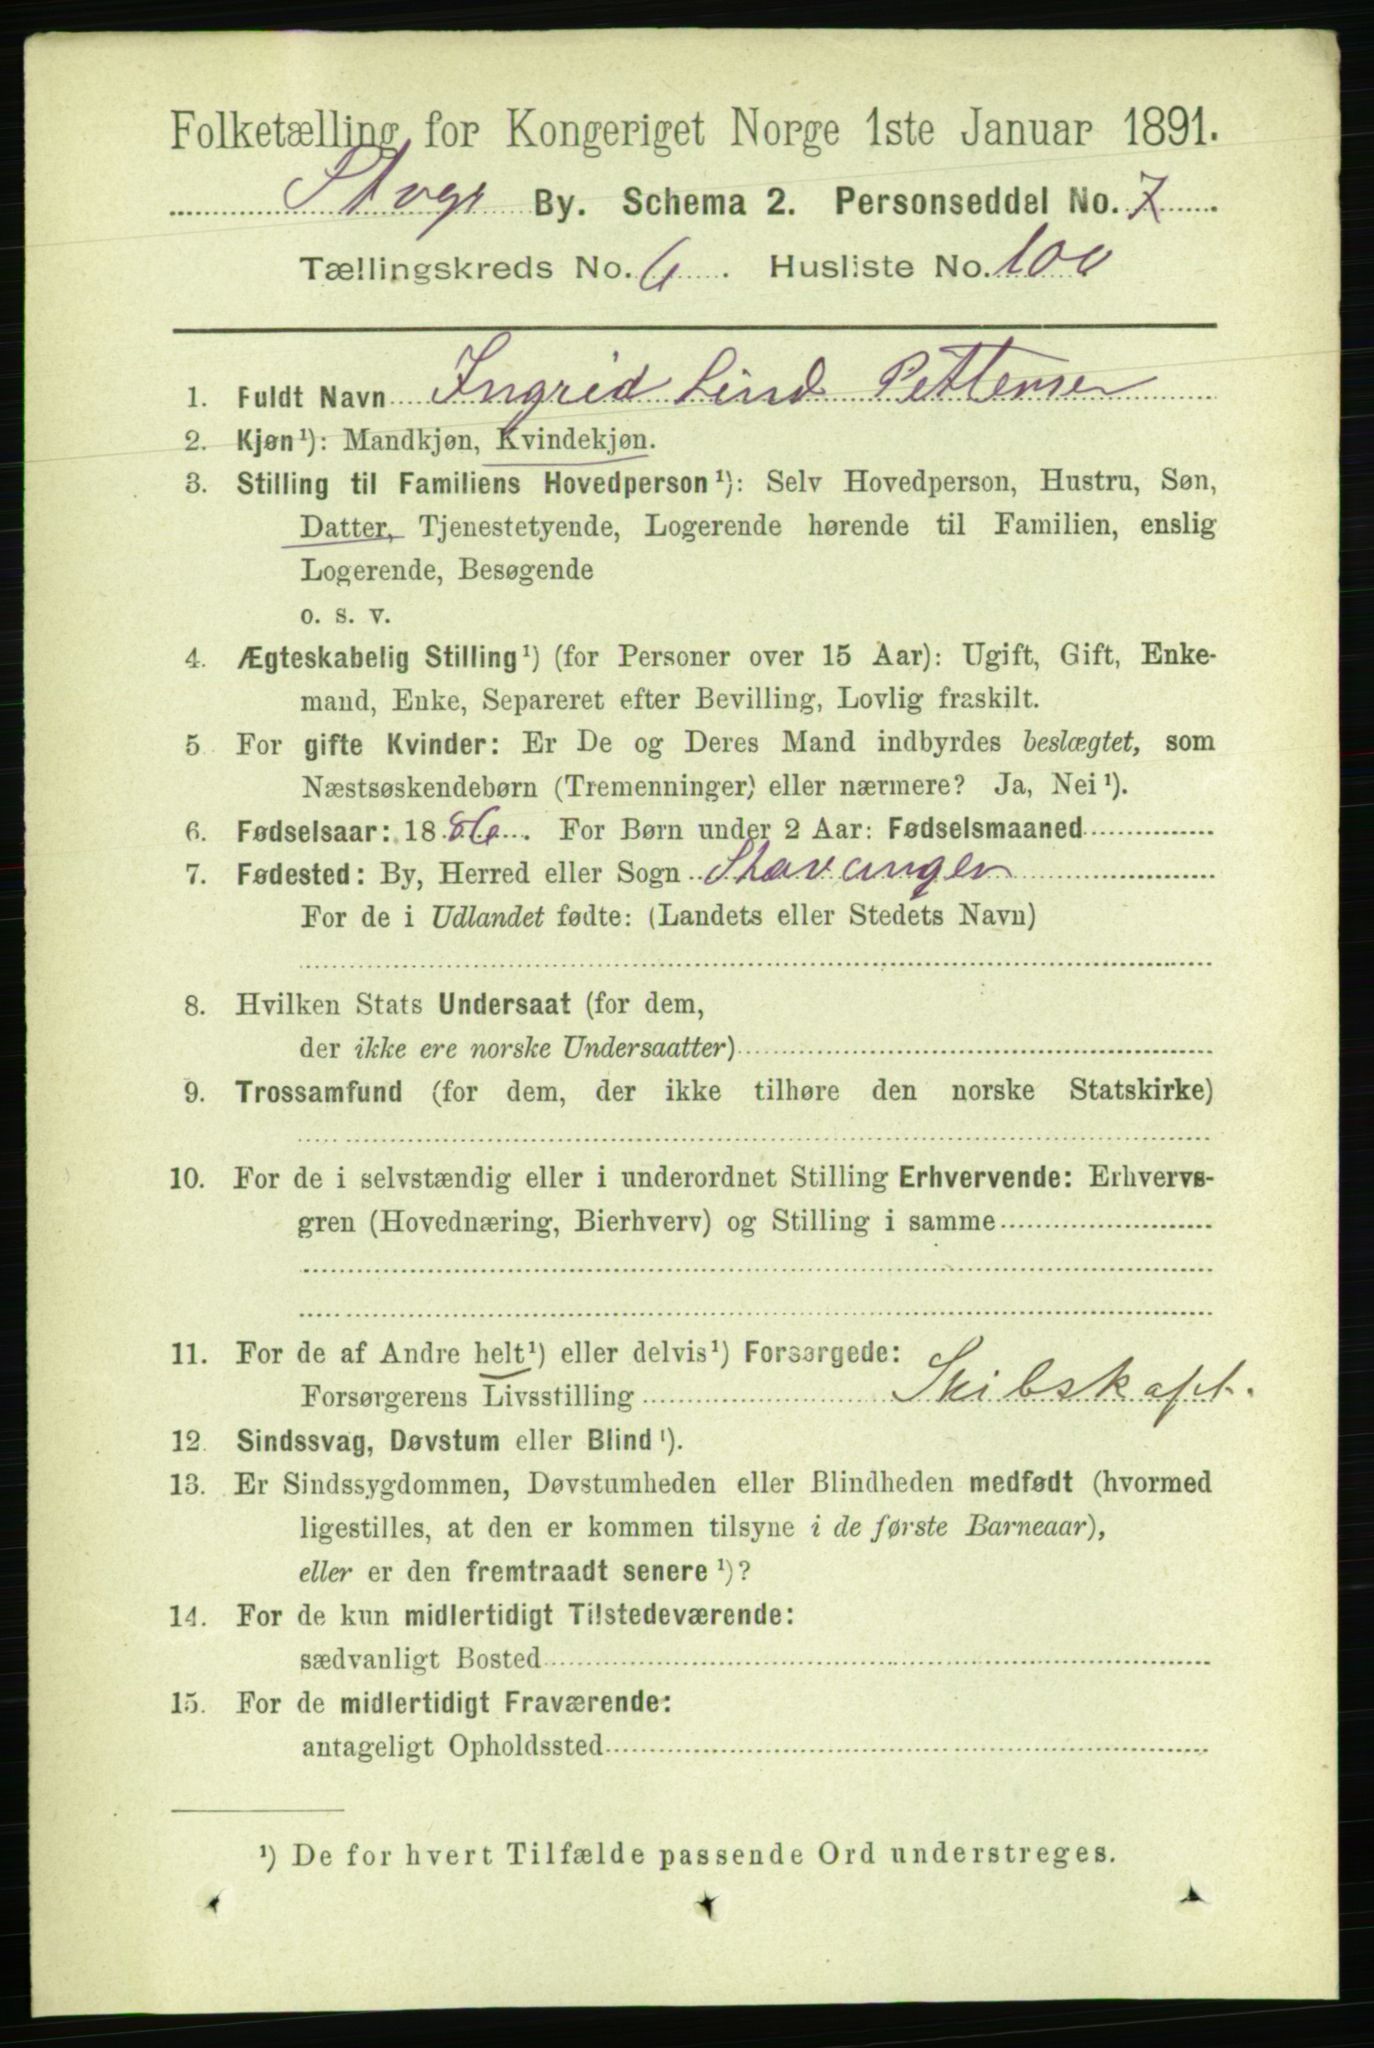 Folketælling for Kongeriget Norge 1ste Januar 1891.
Stvgr By. Schema 2. Personseddel No. 7
Tællingskreds No. 6. Husliste No. 100
1. Fuldt Navn Ingrid Lind Pettersen
2. Kjøn¹): Mandkjøn, Kvindekjøn.
3. Stilling til Familiens Hovedperson¹): Selv Hovedperson, Hustru, Søn,
Datter, Tjenestetyende, Logerende hørende til Familien, enslig
Logerende, Besøgende
o. s. v.
4. Ægteskabelig Stilling¹) (for Personer over 15 Aar): Ugift, Gift, Enke-
mand, Enke, Separeret efter Bevilling, Lovlig fraskilt.
5 For gifte Kvinder: Er De og Deres Mand indbyrdes beslægtet, som
Næstsøskendebørn (Tremenninger) eller nærmere? Ja, Nei¹).
6. Fødselsaar: 1886. For Børn under 2 Aar: Fødselsmaaned
7. Fødested: By, Herred eller Sogn Stavanger
For de i Udlandet fødte: (Landets eller Stedets Navn)
8. Hvilken Stats Undersaat (for dem,
der ikke ere norske Undersaatter)
9. Trossamfund (for dem, der ikke tilhøre den norske Statskirke)
10. For de i selvstændig eller i underordnet Stilling Erhvervende: Erhvervs-
gren (Hovednæring, Bierhverv) og Stilling i samme
11. For de af Andre helt¹) eller delvis¹) Forsørgede:
Forsørgerens Livsstilling Skibskapt.
12. Sindssvag, Døvstum eller Blind¹).
13. Er Sindssygdommen, Døvstumheden eller Blindheden medfødt (hvormed
ligestilles, at den er kommen tilsyne i de første Barneaar),
eller er den fremtraadt senere¹)?
14. For de kun midlertidigt Tilstedeværende:
sædvanligt Bosted
15. For de midlertidigt Fraværende:
antageligt Opholdssted
¹) De for hvert Tilfælde passende Ord understreges.